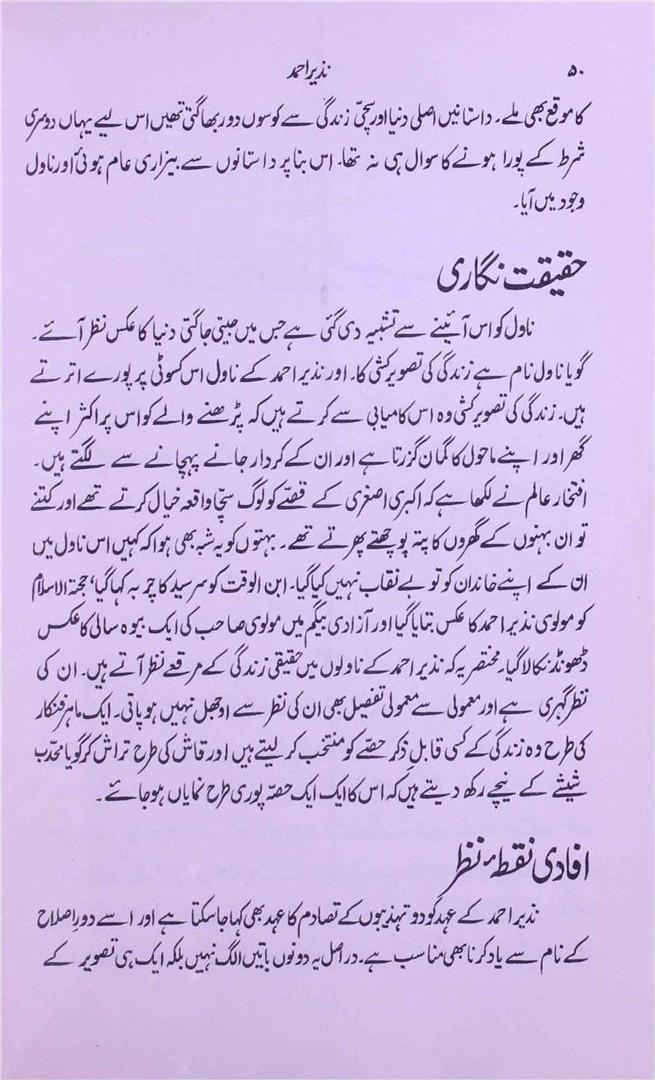 ۵۰
نذیر احمد
کا موقع بھی ملے۔ داستانیں اصلی دنیا اور سچی زندگی سے کوسوں دور بھاگتی تھیں اس لیے یہاں دوسری
شرط کے پورا ہونے کا سوال ہی نہ تھا۔ اس بنا پر داستانوں سے بیزاری عام ہوئی اور ناول
وجود میں آیا۔
حقیقت نگاری
ناول کو اس آئینے سے تشبیہ دی گئی ہے جس میں جیتی جاگتی دنیا کا عکس نظر آئے۔
گویا ناول نام ہے زندگی کی تصویر کشی کا۔ اور نذیر احمد کے ناول اس کسوٹی پر پورے اترتے
ہیں۔ زندگی کی تصویر کشی وہ اس کامیابی سے کرتے ہیں کہ پڑھنے والے کو اس پر اکثر اپنے
گھر اور اپنے ماحول کا گمان گزرتا ہے اور ان کے کردار جانے پہچانے سے لگتے ہیں۔
افتخار عالم نے لکھا ہے کہ اکبری اصغری کے قصّے کو لوگ سچّا واقعہ خیال کرتے تھے اور کتنے
تو ان بہنوں کے گھروں کا پتہ پوچھتے پھرتے تھے۔ بہتوں کو یہ شبہ بھی ہوا کہ کہیں اس ناول میں
ان کے اپنے خاندان کو تو بے نقاب نہیں کیا گیا۔ ابن الوقت کو سرسید کا چربہ کہا گیا، حجۃ الاسلام
کو مولوی نذیر احمد کا عکس بتایا گیا اور آزادی بیگم میں مولوی صاحب کی ایک بیوہ سالی کا عکس
ڈھونڈ نکالا گیا۔ مختصر یہ کہ نذیر احمد کے ناولوں میں حقیقی زندگی کے مرقعے نظر آتے ہیں۔ ان کی
نظر گہری ہے اور معمولی سے معمولی تفصیل بھی ان کی نظر سے اوجھل نہیں ہو پاتی۔ ایک ماہر فنکار
کی طرح وہ زندگی کے کسی قابلِ ذکر حصّے کو منتخب کر لیتے ہیں اور قاش کی طرح تراش کر گویا محدّب
شیشے کے نیچے رکھ دیتے ہیں کہ اس کا ایک ایک حصّہ پوری طرح نمایاں ہو جائے۔
افادی نقطۂ نظر
نذیر احمد کے عہد کو دو تہذیبوں کے تصادم کا عہد بھی کہا جا سکتا ہے اور اسے دورِ اصلاح
کے نام سے یاد کرنا بھی مناسب ہے۔ دراصل یہ دونوں باتیں الگ نہیں بلکہ ایک ہی تصویر کے